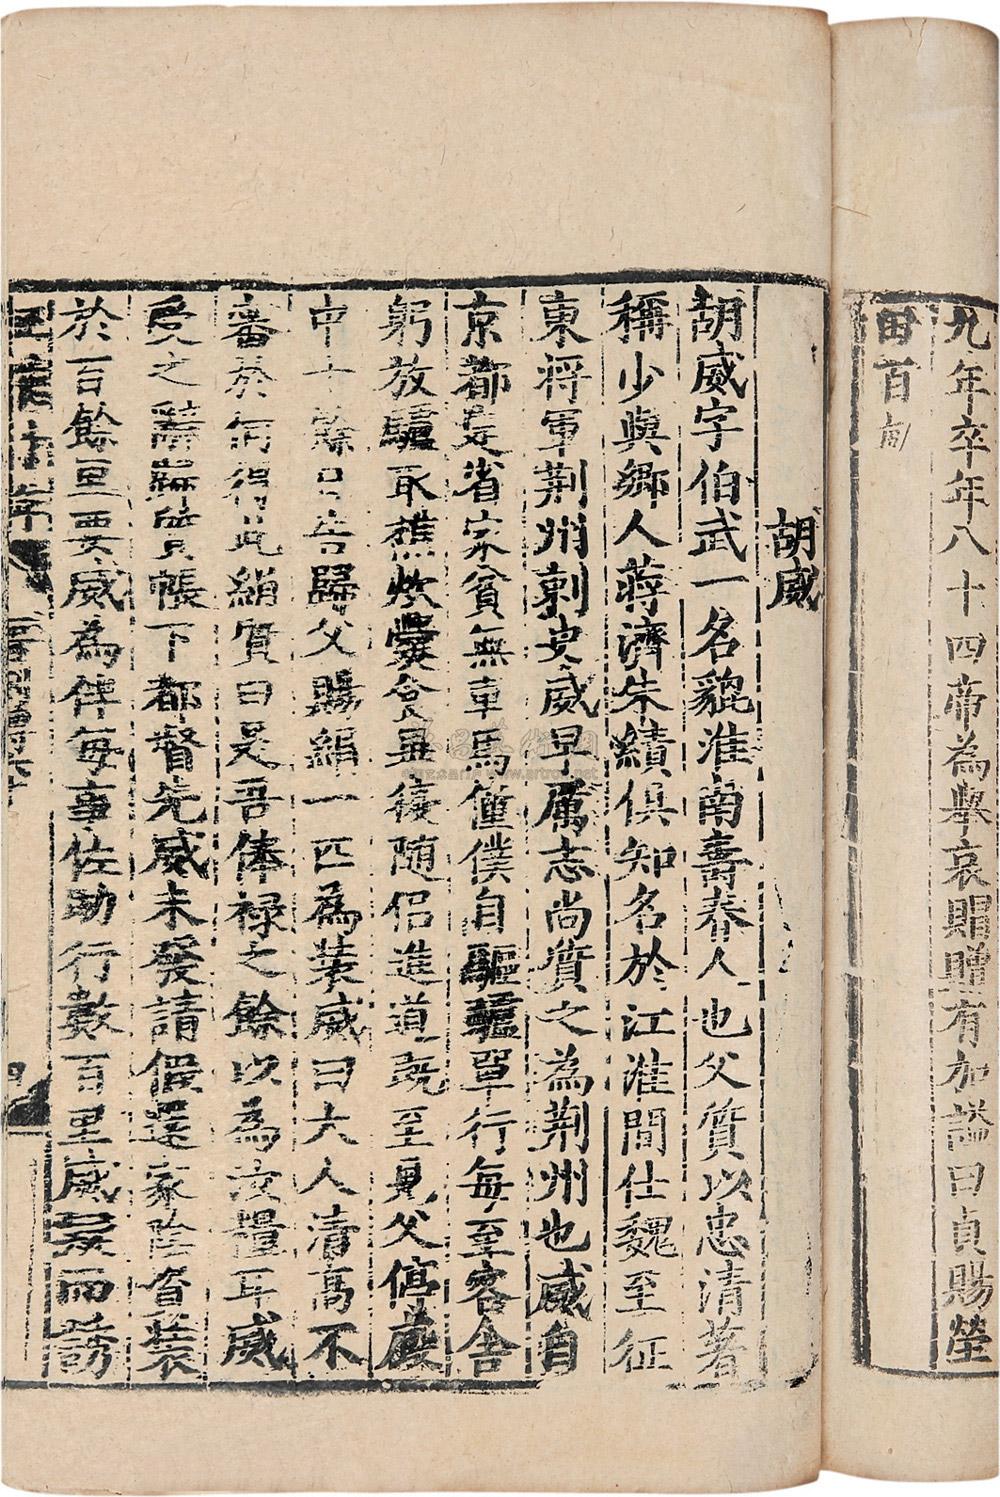 元年卒年八十四帝為舉哀賵贈有加謚曰貞賜塋
田百畝
胡威
胡威字伯武一名貔淮南壽春人也父質以忠清著
稱少與鄉人蔣濟朱績俱知名於江淮間仕魏至征
東將軍荆州刺史威早厲志尚質之為荆州也威自
京都定省家貧無車馬僮僕自驅驢單行每至客舍
躬放驢取樵炊爨食畢復隨侶進道既至見父停廄
中十餘日告歸父賜絹一匹為裝威曰大人清高不
審於何得此絹質曰是吾俸祿之餘以為汝糧耳威
受之辭歸質帳下都督先威未發請假還家陰資裝
於百餘里要威為伴每事佐助行數百里威疑而誘